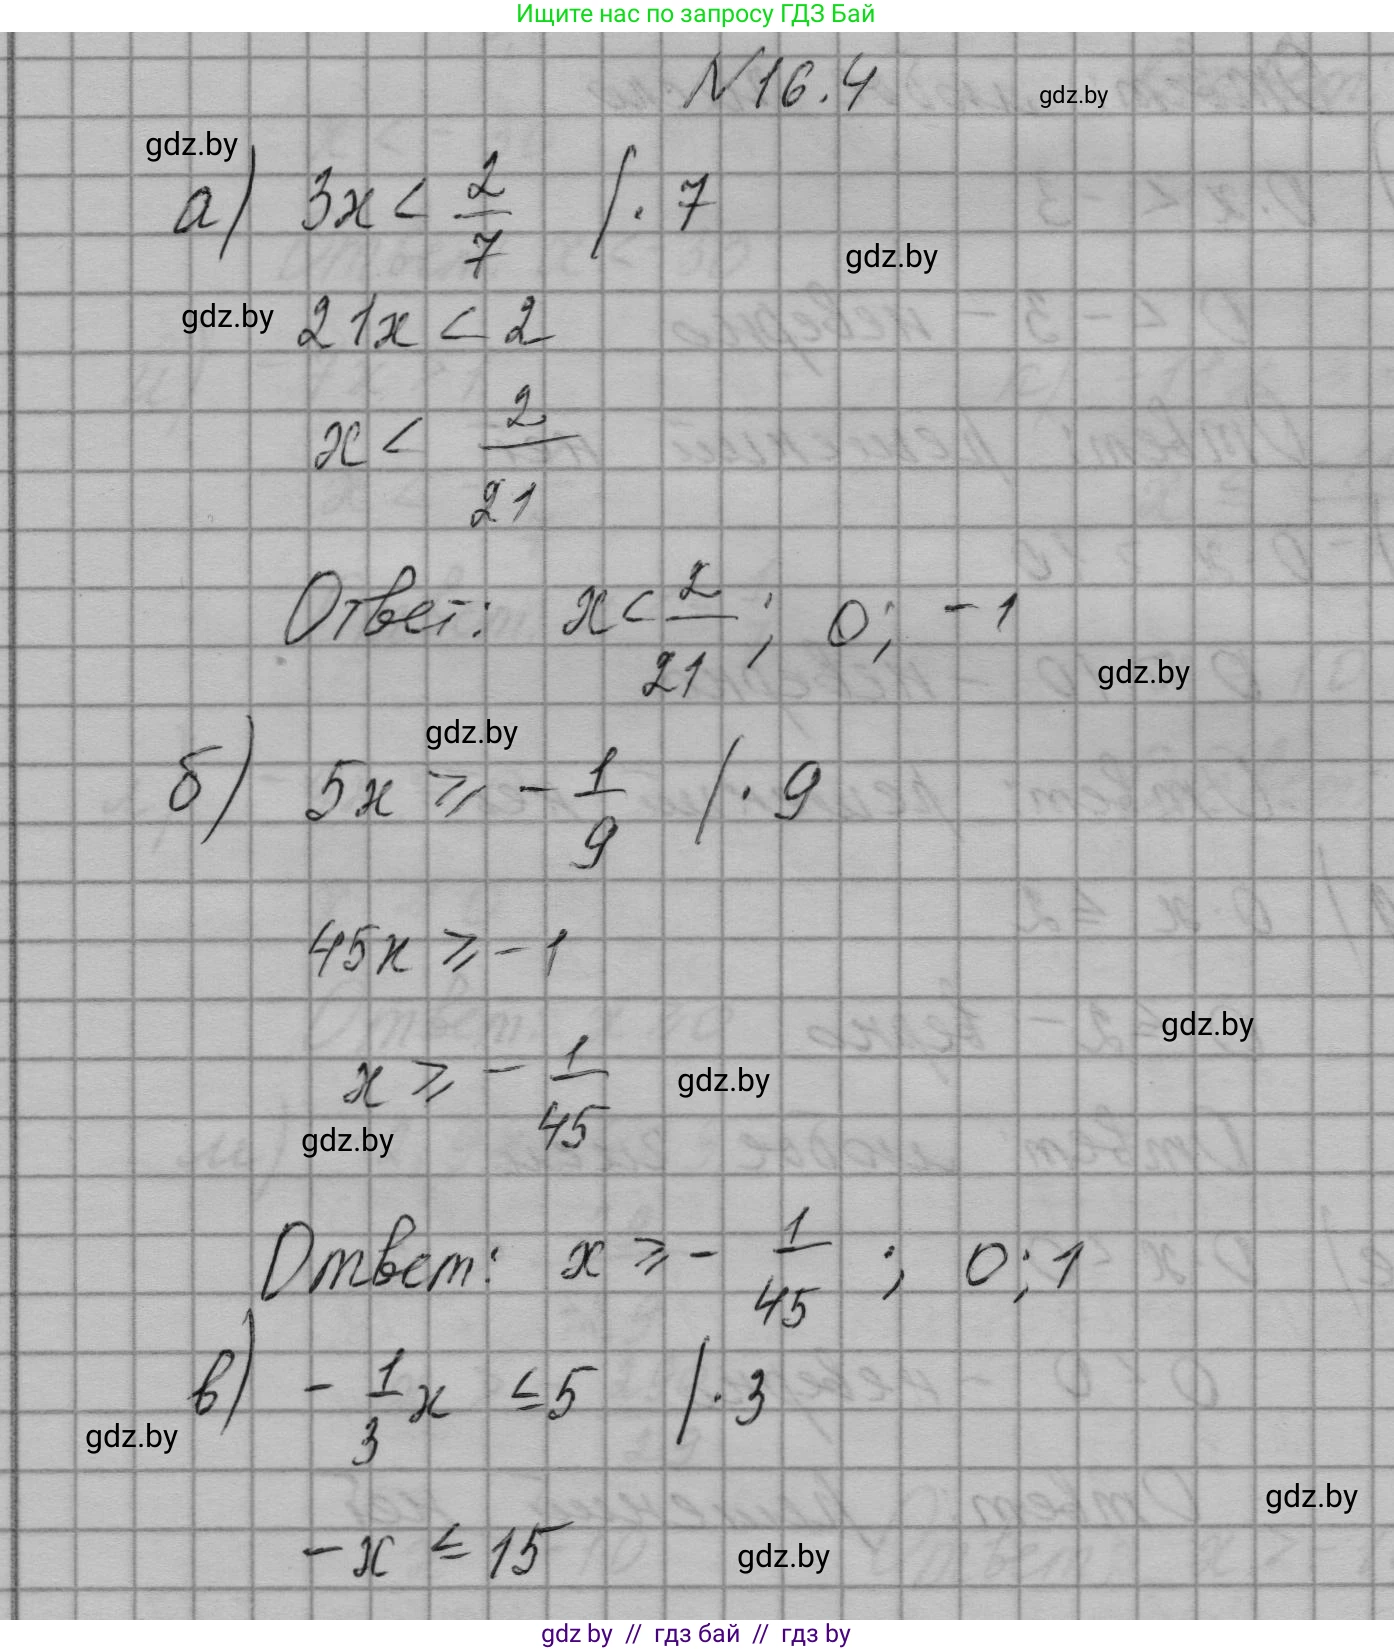 Ищите нас по запросу ГДЗ Бай
N16.4
gdz.by
gdz.by
а) 3x < 2/7 |· 7
gdz.by
gdz.by
21x < 2
x < 2/21
Ответ: x < 2/21; 0; -1
gdz.by
gdz.by
б) 5x ⩾ -1/9 |· 9
45x ⩾ -1
gdz.by
x ⩾ -1/45
gdz.by
gdz.by
Ответ: x ⩾ -1/45; 0; 1
в) -1/3x ≤ 5 |· 3
gdz.by
gdz.by
-x ≤ 15
gdz.by
gdz by // гдз бай // гдз by